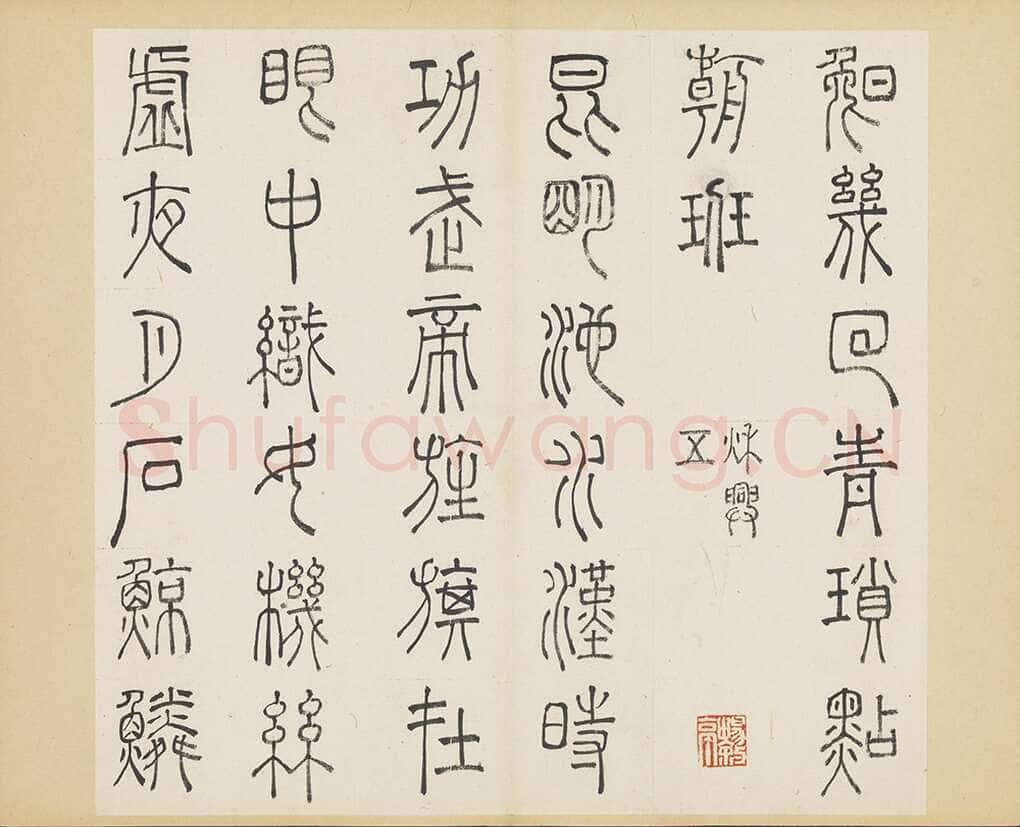 晚幾回青瑣點
朝班
秋興
五
昆明池水漢時
功武帝旌旗在
眼中織女機絲
虛夜月石鯨鱗
Shufawang.CN